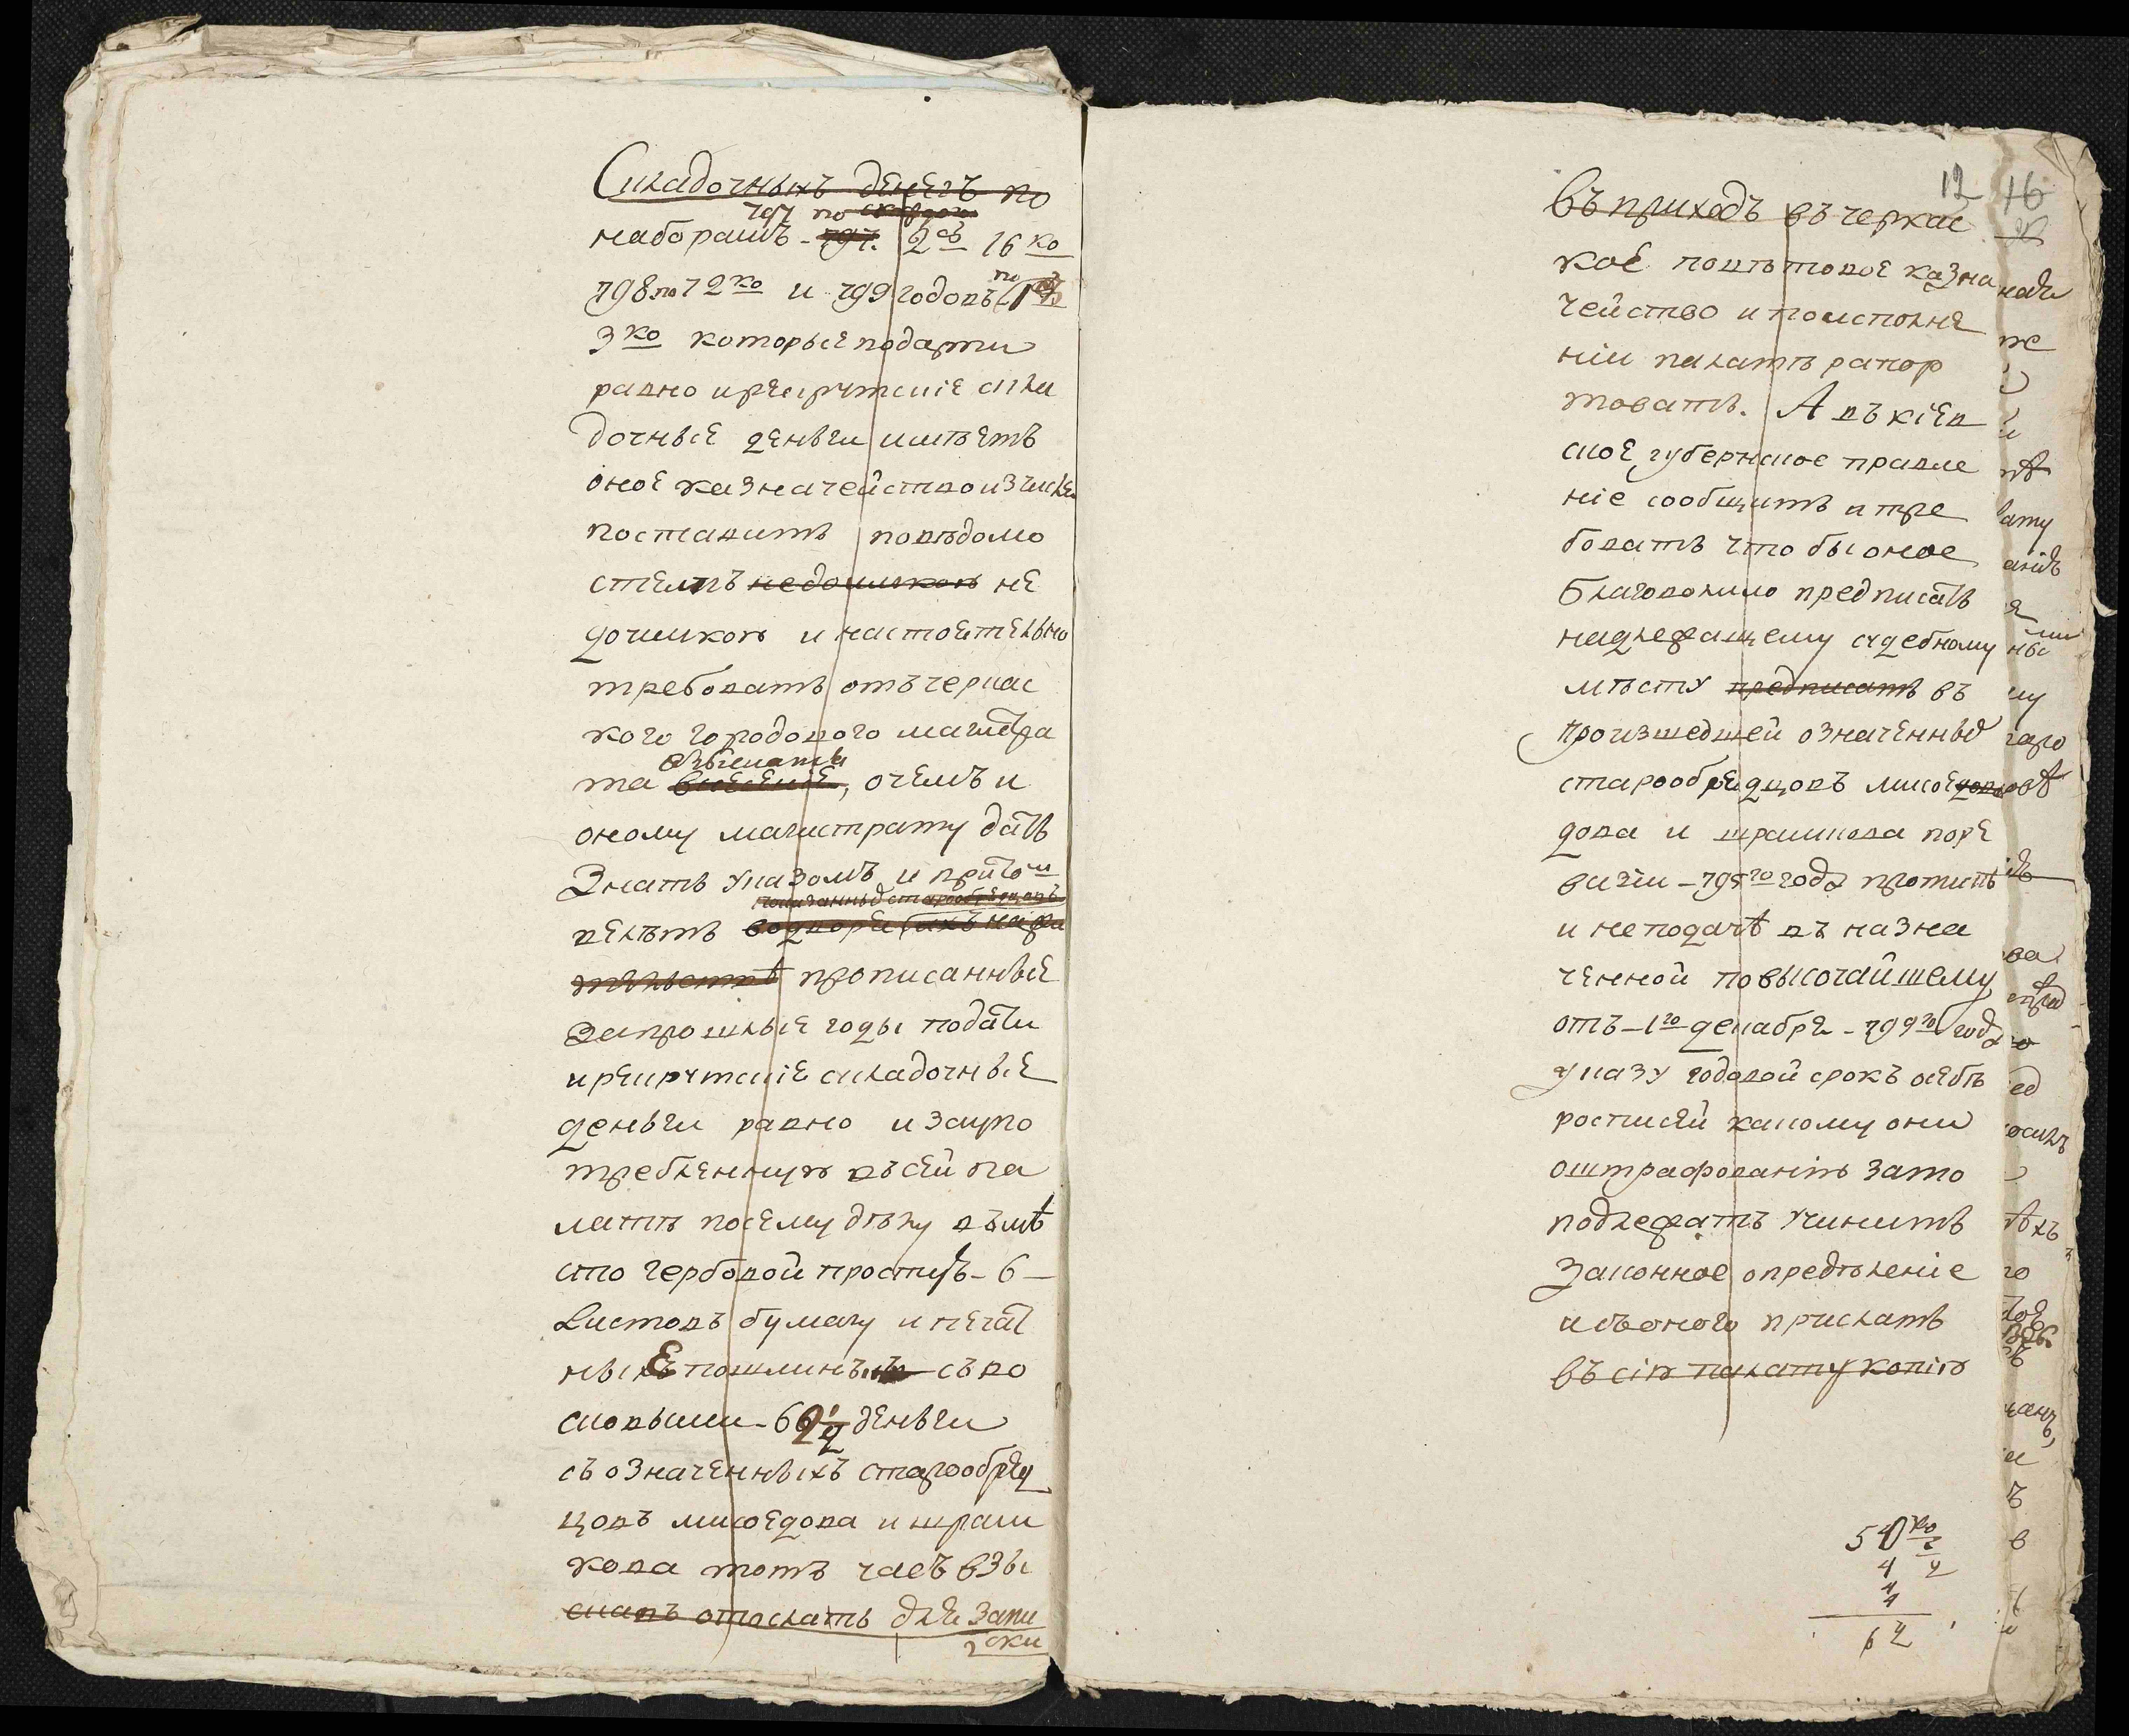 Складочныхъ денегъ по
797 по
наборамъ - 797. 2 16 ко
798 по 72 ко и 799 годовъ по
3 ко которые подати
равно и рекрутские скла
дочные деньги имѣетъ
оное казначейство изчисля
поставить по вѣдомо
стямъ недоимкою не
доимкою и настоятельно
требовать отъ черкас
кого городового магистра
взыскать
та внесение, о чемъ и
оному магистрату дать
знать указомъ и при томъ
показанныхъ старообрядцовъ
велѣть
жительствѣ прописанные
за прошлые годы подати
и рекрутские складочные
деньги равно и за упо
требленную въ сей па
латѣ по сему дѣлу въмѣ
сто гербовой простую - 6 -
листовъ бумагу и печат
ные пошлины съ во
сковыми - 62 1/2 деньги
съ означенныхъ старообряд
цовъ мисоедова и шрам
кова тотъ часъ взы
скавъ отослать для запи
ски
12 16
въ приходъ въ черкас
кое повѣтовое казна
чейство и по исполне
нии палатѣ рапор
товать. А въ киев
ское губернское правле
ние сообщить и тре
бовать что бы оное
благоволило предписать
надлежащему судебному
мѣсту предписать въ
произшедшей означенныхъ
старообрядцовъ мисое
дова и шрамкова по ре
визии - 795го года прописке
и не подаче въ назна
ченной по высочайшему
отъ - 1го декабря - 799го года
указу годовой срокъ о себѣ
росписей какому они
оштрафованию за то
подлежатъ учинить
законное опредѣление
и съ оного прислать
въ сию палату копию
4
4
62